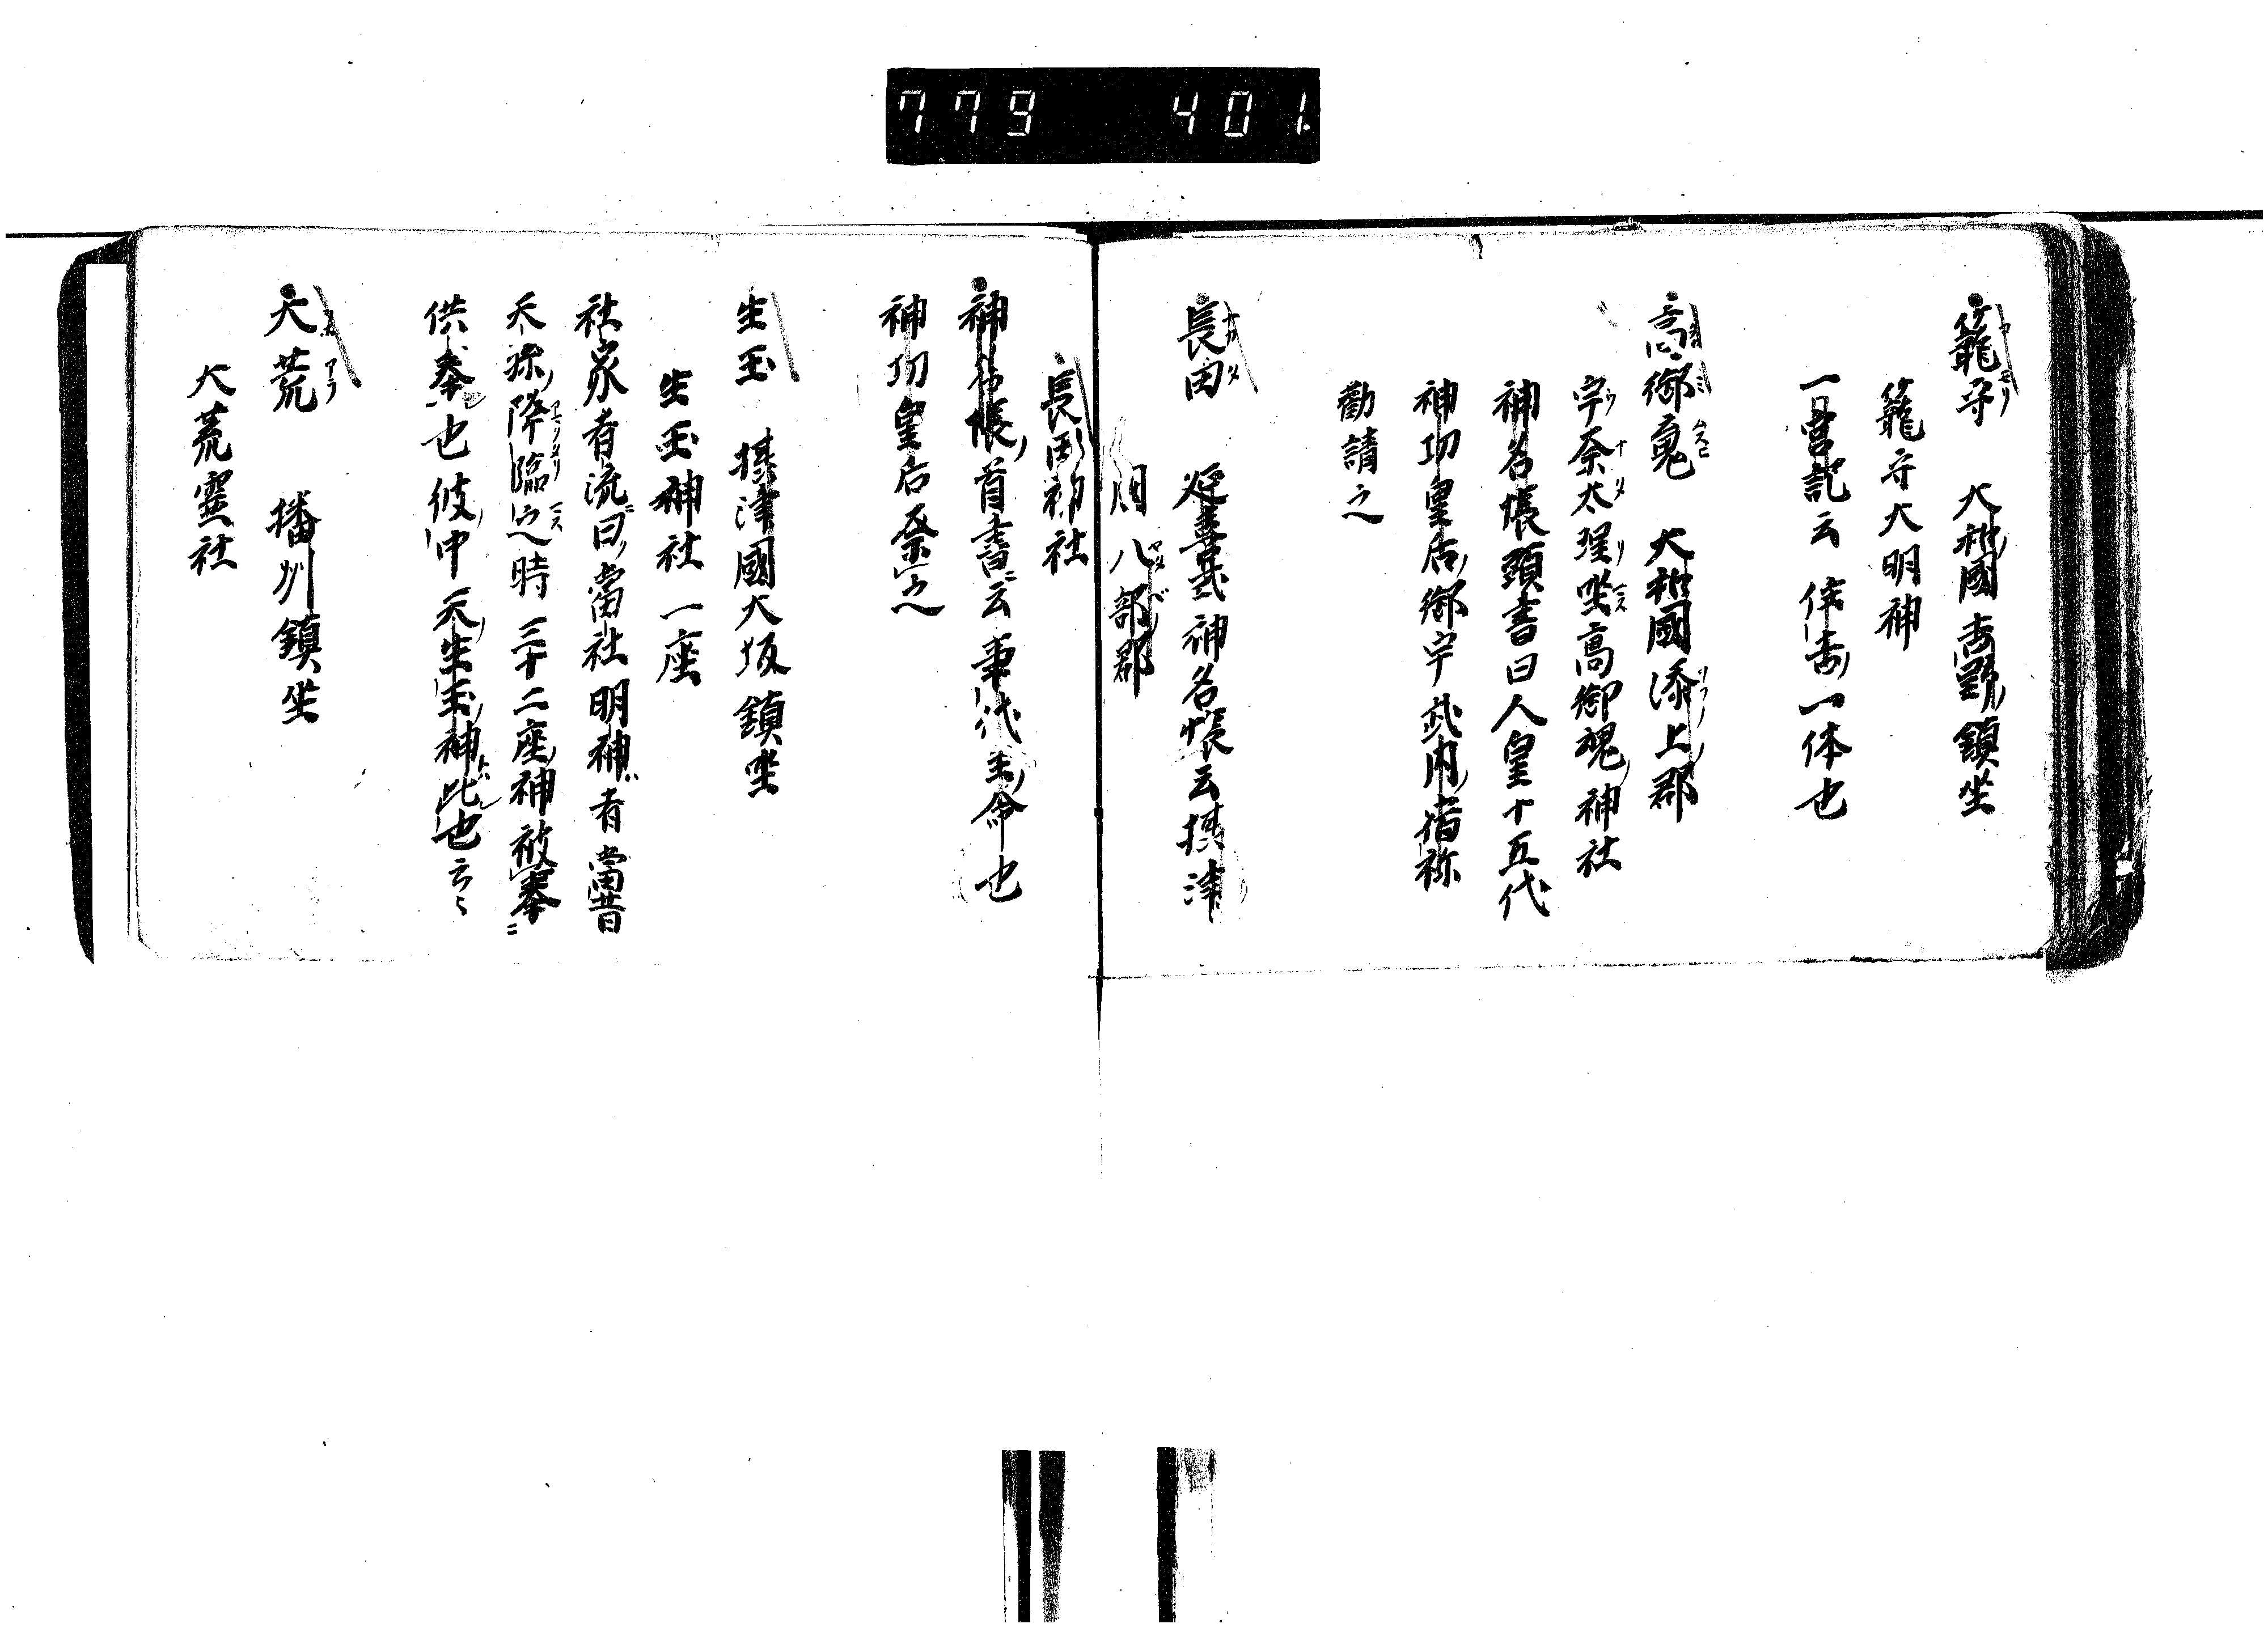 779 401
籠守 大和國吉野鎮坐
籠守大明神
一宮記云 住吉一体也
高御魂 大和國添上郡
宇奈太理坐高御魂神社
神名帳頭書曰人皇十五代
神功皇后御宇武内宿祢
勧請之
長田 延喜式神名帳云摂津
国八部郡
長田神社
神名帳首書云事代主命也
神功皇后祭之
生玉 摂津國大坂鎮坐
生玉神社一座
社家者流曰當社明神者當昔
天孫降臨之時三十二座神被奉
供奉也彼中天生玉神此也云々
大荒 播州鎮坐
大荒霊社